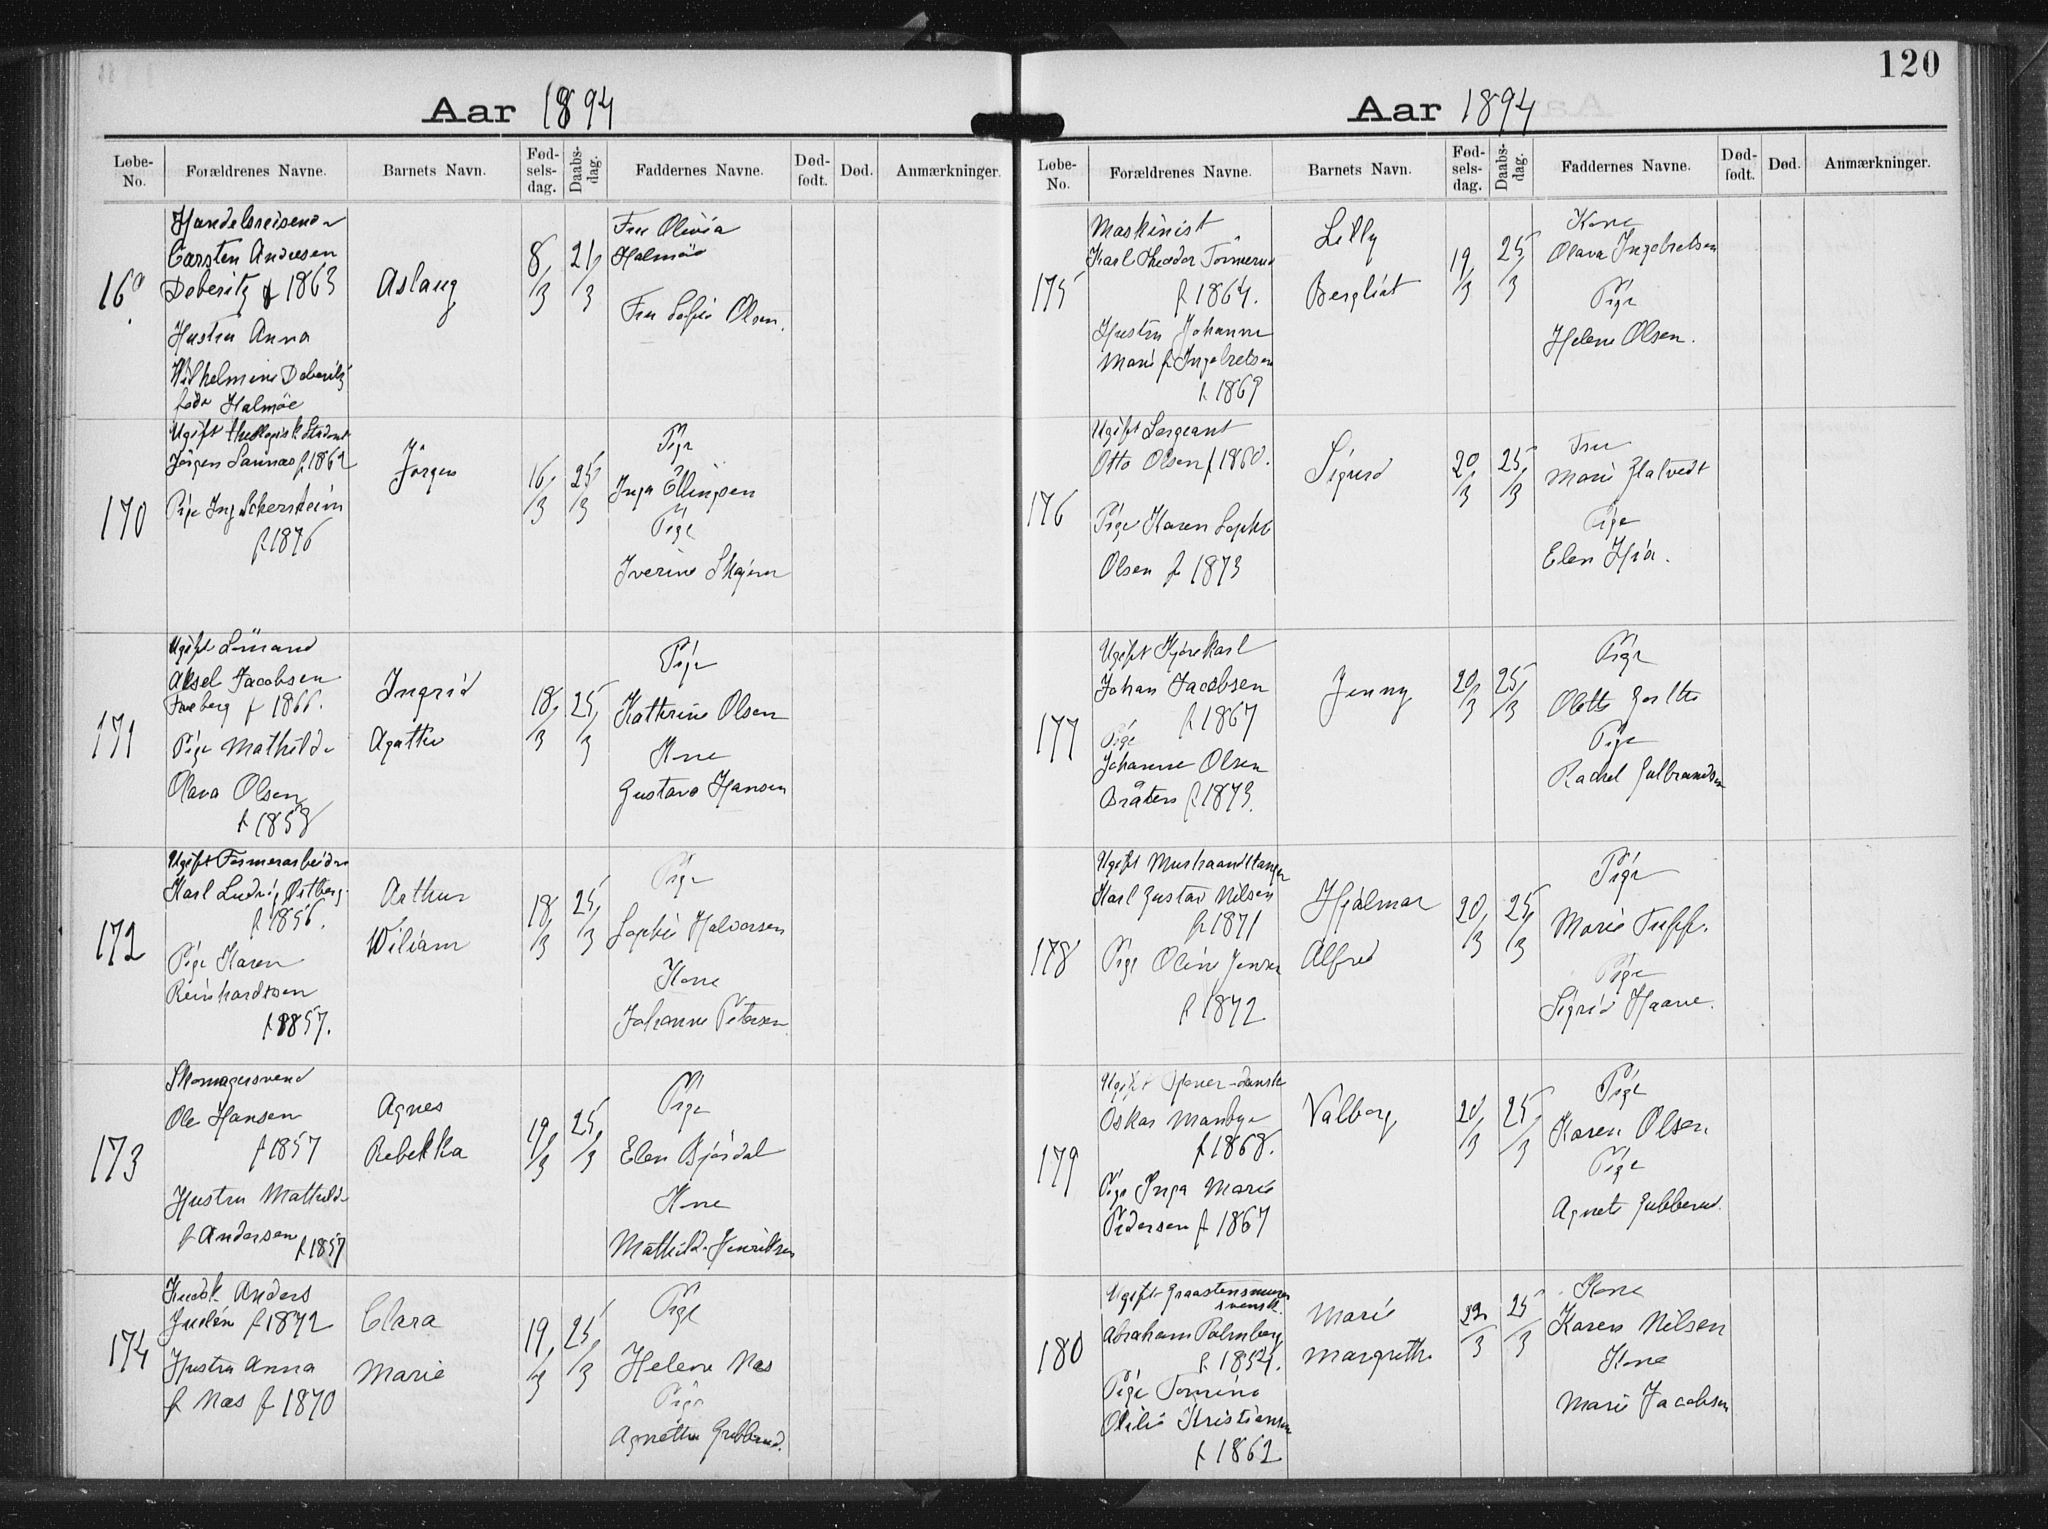 Aar 1894
Løbe-No.
Forældrenes Navne.
Barnets Navn.
Fød-sels-dag.
Daabs-dag.
Faddernes Navne.
Død-født.
Død.
Anmærkninger.
169
Handelsreisende
Carsten Andresen
Deberitz f 1863
Hustru Anna
Vilhelmine Deberitz
føde Halmøe
Aslaug
8/3
21/3
Fru Olivia
Halmøe
Fru Sofie Olsen.
170
Ugift theologisk Student
Jørgen f 1862
Pige
f 1876
Jørgen
16/3
25/3
Pige
Inga Ellingsen
Pige
Iverine
171
Ugift Sømand
Aksel Jacobsen
f 1866.
Pige Mathilde
Olava Olsen
f 1858
Ingrid
Agathe
18/3
25/3
Pige
Kathrine Olsen
Kone
Gustava Hansen
172
Ugift Formerarbeider
Karl Ludvig Østberg
f 1856.
Pige Karen
Reinhardtsen
f 1857.
Arthur
Wiliam
18/3
25/3
Pige
Sophie Halvorsen
Kone
Johanne Petersen
173
Skomagersvend
Ole Hansen
f 1857
Hustru Mathilde
f Andersen
f 1857
Agnes
Rebekka
19/3
25/3
Pige
Elen Bjørdal
Kone
Mathilde Henriksen
174
Kudsk Anders
Judén f 1872
Hustru Anna
f Næs f 1870
Clara
Marie
19/3
25/3
Pige
Helene Næs
Pige
Agnethe Gubberud.
120
Aar 1894
Løbe-No.
Forældrenes Navne.
Barnets Navn.
Fød-sels-dag.
Daabs-dag.
Faddernes Navne.
Død-født.
Død.
Anmærkninger.
175
Maskinist
Karl Theodor Tømerud
f 1864.
Hustru Johanne
Marie f Ingebretsen
f 1869
Lilly
Bergliot
19/3
25/3
Kone
Olava Ingebretsen
Pige
Helene Olsen.
176
Ugift Sergeant
Otto Olsen f 1860.
Pige Karen Sophie
Olsen f 1873
Sigurd
20/3
25/3
Fru
Marie
Pige
Elen
177
Ugift Kjørekarl
Johan Jacobsen
f 1867
Pige
Johanne Olsen
Bråten f 1873.
Jenny
20/3
25/3
Pige
Olette
Pige
Rachel Gulbrandsen
178
Ugift
Karl Gustav Nilsen
f 1871
Pige Oline Jensen
f 1872
Hjalmar
Alfred
20/3
25/3
Pige
Marie
Pige
Sigrid Haave.
179
Ugift dansk
Oskar
f 1868.
Pige Inga Marie
Pedersen f 1867
Valborg
20/3
25/3
Pige
Karen Olsen
Pige
Agnete Gubberud.
180
Ugift
svensk.
Abraham Palmberg
f 1854.
Pige Tomine
Otilie Kristiansen
f 1862
Marie
Margrethe
22/3
25/3
Kone
Karen Nilsen
Kone
Marie Jacobsen